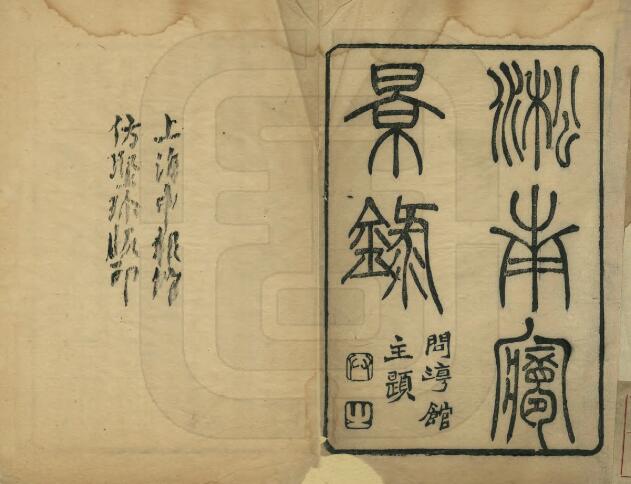 淞南㝱
景錄
問淳館
主題
上海申報館
仿聚珍版印